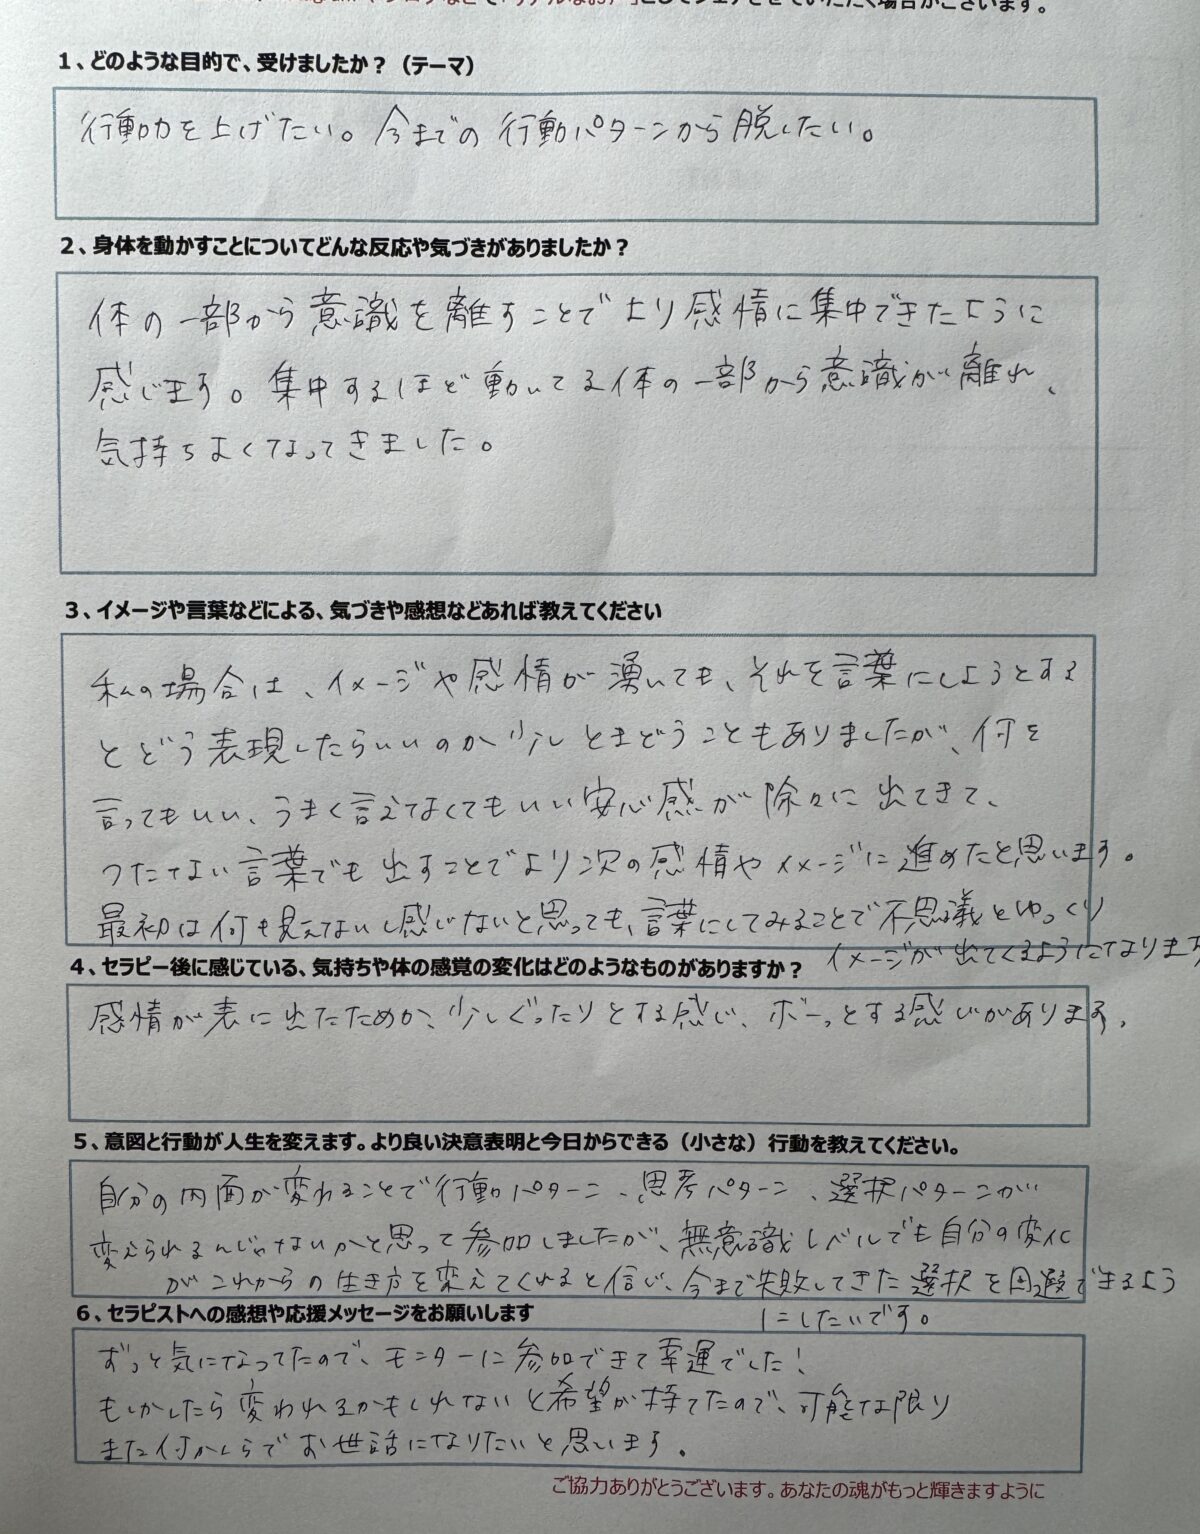 としてシェアさせていただく場合がございます。
1、どのような目的で、受けましたか？（テーマ）
行動力を上げたい。今までの行動パターンから脱したい。
2、身体を動かすことについてどんな反応や気づきがありましたか？
体の一部から意識を離すことでより感情に集中できたように
感じます。集中するほど動いてる体の一部から意識が離れ、
気持ちよくなってきました。
3、イメージや言葉などによる、気づきや感想などあれば教えてください
私の場合は、イメージや感情が湧いても、それを言葉にしようとする
とどう表現したらいいのか少しとまどうこともありましたが、何を
言ってもいい、うまく言えてなくてもいい安心感が除々に出てきて、
つたない言葉でも出すことでより次の感情やイメージに進めたと思います。
最初は何も見えてないし感じないと思っても、言葉にしてみることで不思議とゆっくり
イメージが出てくるようになります
4、セラピー後に感じている、気持ちや体の感覚の変化はどのようなものがありますか？
感情が表に出たためか、少しぐったりとする感じ、ボーっとする感じがあります。
5、意図と行動が人生を変えます。より良い決意表明と今日からできる（小さな）行動を教えてください。
自分の内面が変われることで行動パターン、思考パターン、選択パターンが
変えられるんじゃないかと思って参加しましたが、無意識レベルでも自分の変化
がこれからの生き方を変えてくれると信じ、今まで失敗してきた選択を回避できるよう
にしたいです。
6、セラピストへの感想や応援メッセージをお願いします
ずっと気になってたので、モニターに参加できて幸運でした！
もしかしたら変われるかもしれないと希望が持てたので、可能な限り
また何かしらでお世話になりたいと思います。
ご協力ありがとうございます。あなたの魂がもっと輝きますように